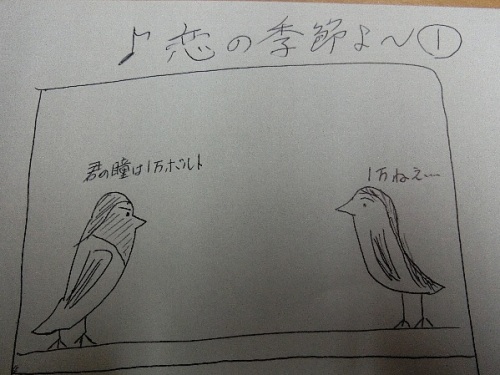 ♪恋の季節よ〜①
君の瞳は1万ボルト
1万ねえ…